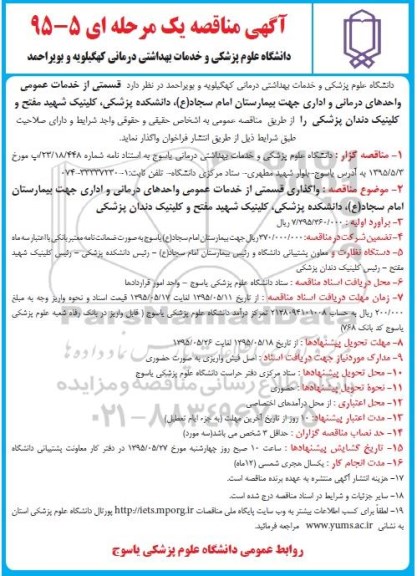 آگهی مناقصه یک مرحله ای ۵-۹۵
دانشگاه علوم پزشکی و خدمات بهداشتی درمانی کهگیلویه و بویراحمد
دانشگاه علوم پزشکی و خدمات بهداشتی درمانی کهگیلویه و بویراحمد در نظر دارد قسمتی از خدمات عمومی
واحدهای درمانی و اداری جهت بیمارستان امام سجاد(ع)، دانشکده پزشکی، کلینیک شهید مفتح و
کلینیک دندان پزشکی را از طریق مناقصه عمومی به اشخاص حقیقی و حقوقی واجد شرایط و دارای صلاحیت
طبق شرایط ذیل از طریق انتشار فراخوان واگذار نماید.
۱- مناقصه گزار : دانشگاه علوم پزشکی و خدمات بهداشتی درمانی یاسوج به استناد نامه شماره ۲۳/۱۸/۴۴۸/پ مورخ
۱۳۹۵/۵/۳ به آدرس یاسوج-بلوار شهید مطهری- ستاد مرکزی دانشگاه- تلفن ثابت:
۲- موضوع مناقصه : واگذاری قسمتی از خدمات عمومی واحدهای درمانی و اداری جهت بیمارستان
امام سجاد(ع)، دانشکده پزشکی، کلینیک شهید مفتح و کلینیک دندان پزشکی
۳- برآورد اولیه : ۷/۳۹۵/۳۶۰/۰۰۰ ریال
۴- تضمین شرکت در مناقصه: ۳۷۰/۰۰۰/۰۰۰ ریال جهت بیمارستان امام سجاد(ع) یاسوج به صورت ضمانت نامه معتبر بانکی با اعتبار سه ماه
۵- دستگاه نظارت و معاون پشتیبانی دانشگاه و رئیس بیمارستان امام سجاد(ع) - رئیس دانشکده پزشکی - رئیس کلینیک شهید
مفتح - رئیس کلینیک دندان پزشکی
۶- محل دریافت اسناد مناقصه : ستاد دانشگاه علوم پزشکی یاسوج - واحد امور قراردادها
۷- زمان مهلت دریافت اسناد مناقصه : از تاریخ ۱۳۹۵/۰۵/۱۱ لغایت ۱۳۹۵/۰۵/۱۷ قیمت اسناد و نحوه واریز وجه به مبلغ
۲۰۰/۰۰۰ ریال به حساب تمرکز درآمد دانشگاه علوم پزشکی یاسوج ( قابل واریز در بانک رفاه شعبه علوم پزشکی
یاسوج کد بانک ۷۶۸)
۸- مهلت تحویل پیشنهادها : از تاریخ ۱۳۹۵/۰۵/۱۸ لغایت ۱۳۹۵/۰۵/۲۶
۹- مدارک موردنیاز جهت دریافت اسناد : اصل فیش واریزی به صورت حضوری
۱۰- محل تحویل پیشنهادها : ستاد مرکزی دفتر حراست دانشگاه علوم پزشکی یاسوج
۱۱- نحوه تحویل پیشنهادها : حضوری
۱۲- محل اعتباری : از محل درآمدهای اختصاصی
۱۳- مدت اعتبار پیشنهاد: ۱۰ روز از تاریخ آخرین مهلت (به جزء ایام تعطیل)
۱۴- حد نصاب مناقصه گزاران : حداقل ۳ شخص می باشد(سه مورد)
۱۵- تاریخ گشایش پیشنهادها : ساعت ۱۰ صبح روز چهارشنبه مورخ ۱۳۹۵/۰۵/۲۷ در دفتر کار معاونت پشتیبانی دانشگاه
۱۶- مدت انجام کار : یکسال هجری شمسی (۱۲ماه)
۱۷- هزینه انتشار آگهی منتشره به عهده برنده مناقصه است.
۱۸- سایر جزئیات و شرایط در اسناد مناقصه درج شده است.
۱۹- لطفاً برای کسب اطلاعات بیشتر به وب سایت پایگاه ملی مناقصات http://iets.mporg.ir پورتال دانشگاه علوم پزشکی استان
به نشانی www.yums.ac.ir مراجعه فرمائید.
روابط عمومی دانشگاه علوم پزشکی یاسوج